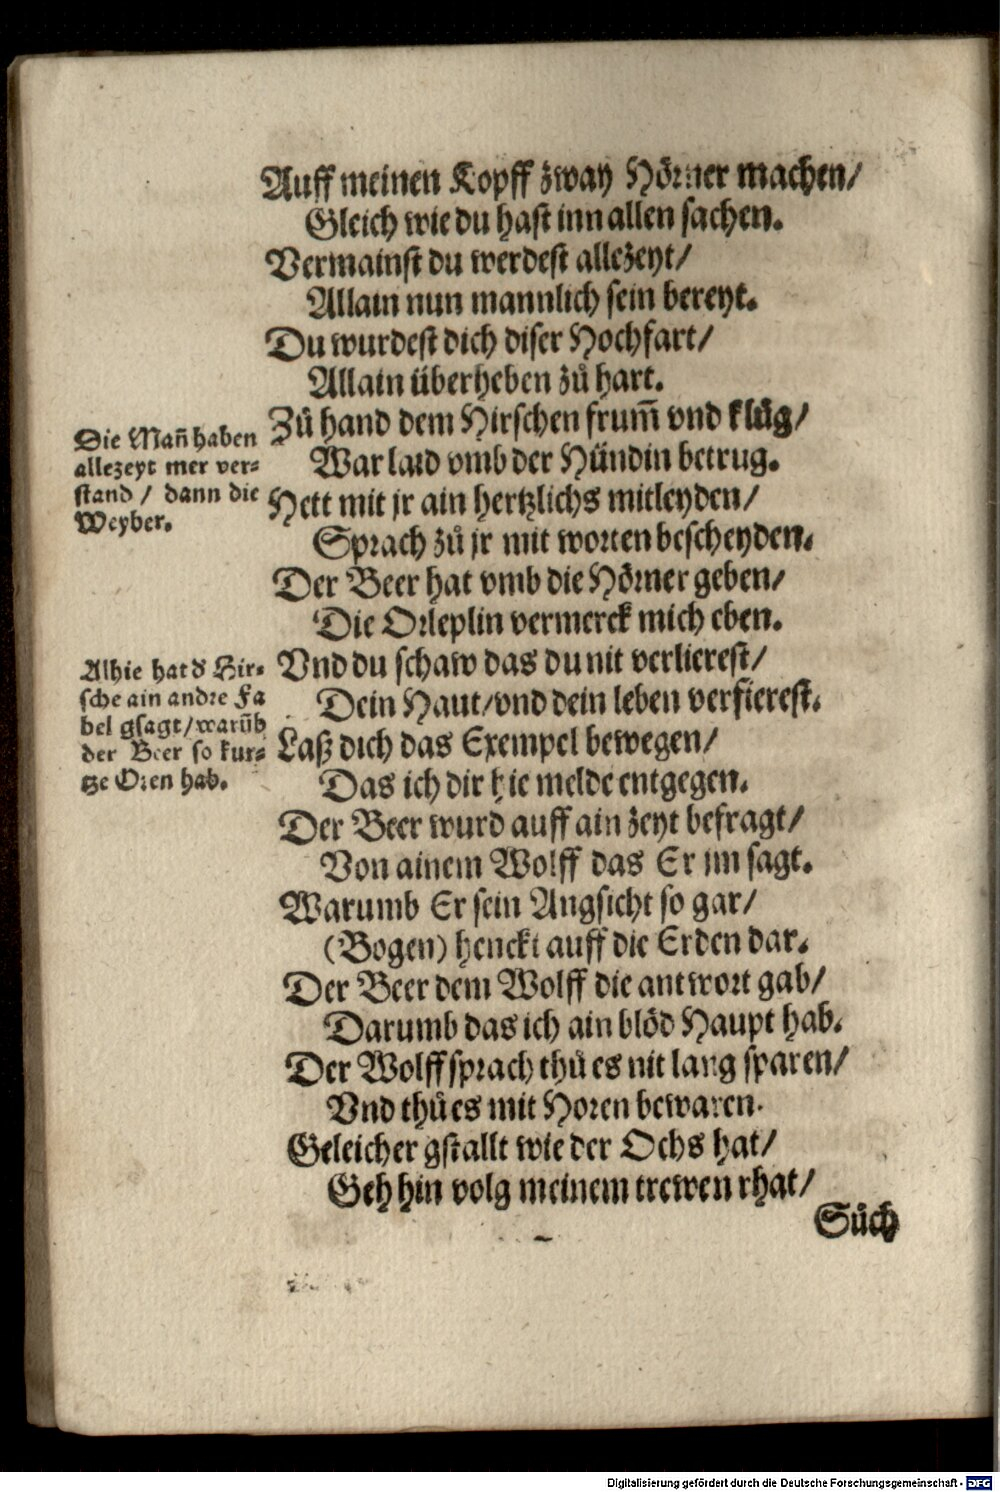 Auff meinen Kopff zway Hörner machen/
Gleich wie du hast inn allen sachen.
Vermainst du werdest allezeyt/
Allain nun mannlich sein bereyt.
Du wurdest dich diser Hochfart/
Allain überheben zů hart.
Zů hand dem Hirschen frum̃ vnd klůg/
War laid vmb der Hündin betrug.
Hett mit jr ain hertzlichs mitleyden/
Sprach zů jr mit worten bescheyden.
Der Beer hat vmb die Hörner geben/
Die Orleplin vermerck mich eben.
Vnd du schaw das du nit verlierest/
Dein Haut/vnd dein leben verfierest.
Laß dich das Exempel bewegen/
Das ich dir hie melde entgegen.
Der Beer wurd auff ain zeyt befragt/
Von ainem Wolff das Er im sagt.
Warumb Er sein Angsicht so gar/
(Bogen) henckt auff die Erden dar.
Der Beer dem Wolff die antwort gab/
Darumb das ich ain blöd Haupt hab.
Der Wolff sprach thů es nit lang sparen/
Vnd thů es mit Horen bewaren.
Geleicher gstallt wie der Ochs hat/
Geh hin volg meinem trewen rhat/
Sůch
Die Mañ haben
allezeyt mer ver-
stand / dann die
Weyber.
Alhie hat đ Hir-
sche ain andre Fa
bel gsagt/warũb
der Beer so kur-
tze Oren hab.
Digitalisierung gefördert durch die Deutsche Forschungsgemeinschaft - DFG